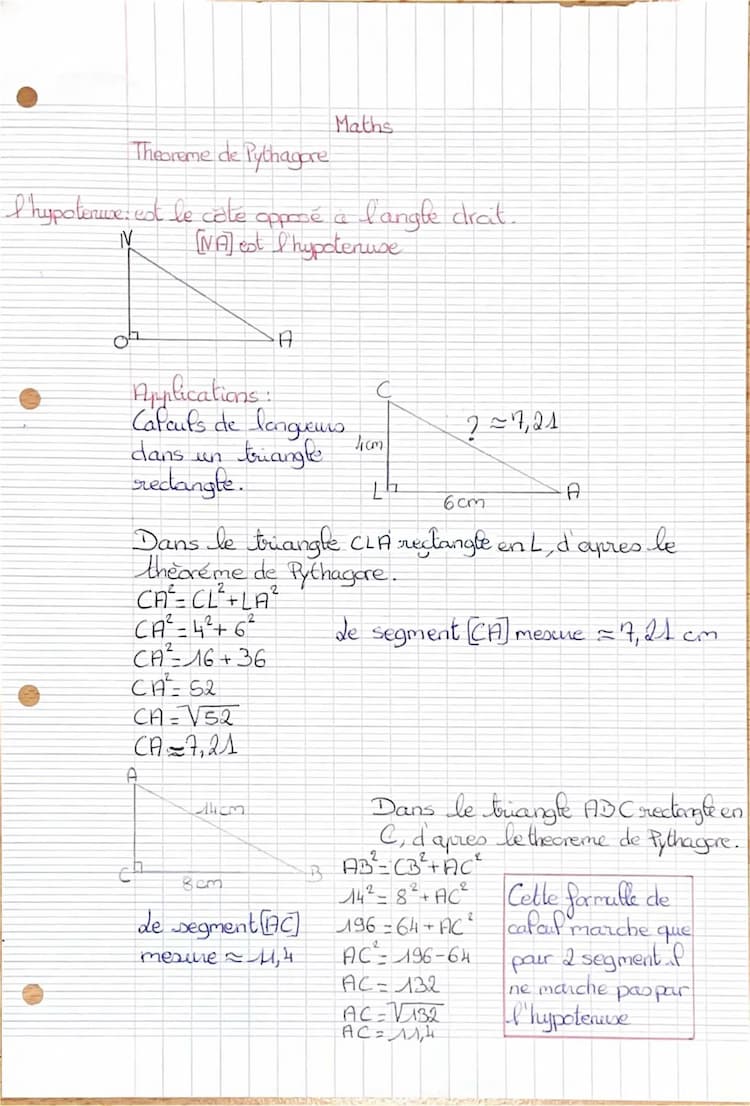 Maths
Theoreme de Pythagore
l'hypotenuse: est le côté opposé à l'angle droit.
N
[NA] est l'hypotenuse
O
A
Applications :
Calculs de longueurs
dans un triangle
rectangle.
C
? ≈ 7,21
4cm
L
6cm
A
Dans le triangle CLA rectangle en L, d'apres le
théoréme de Pythagore.
CA² = CL² + LA²
CA² = 4² + 6²
CA² = 16 + 36
CA² = 52
CA = √52
CA ≈ 7,21
Le segment [CA] mesure ≈ 7,21 cm
A
14cm
C
8cm
B
Le segment [AC]
mesure ≈ 11,4
Dans le triangle ABC rectangle en
C, d'apres le theoreme de Pythagore.
AB² = CB² + AC²
14² = 8² + AC²
196 = 64 + AC²
AC² = 196 - 64
AC = 132
AC = √132
AC = 11,4
Cette formulle de
calcul marche que
pour 2 segment il
ne marche pas par
l'hypotenuse